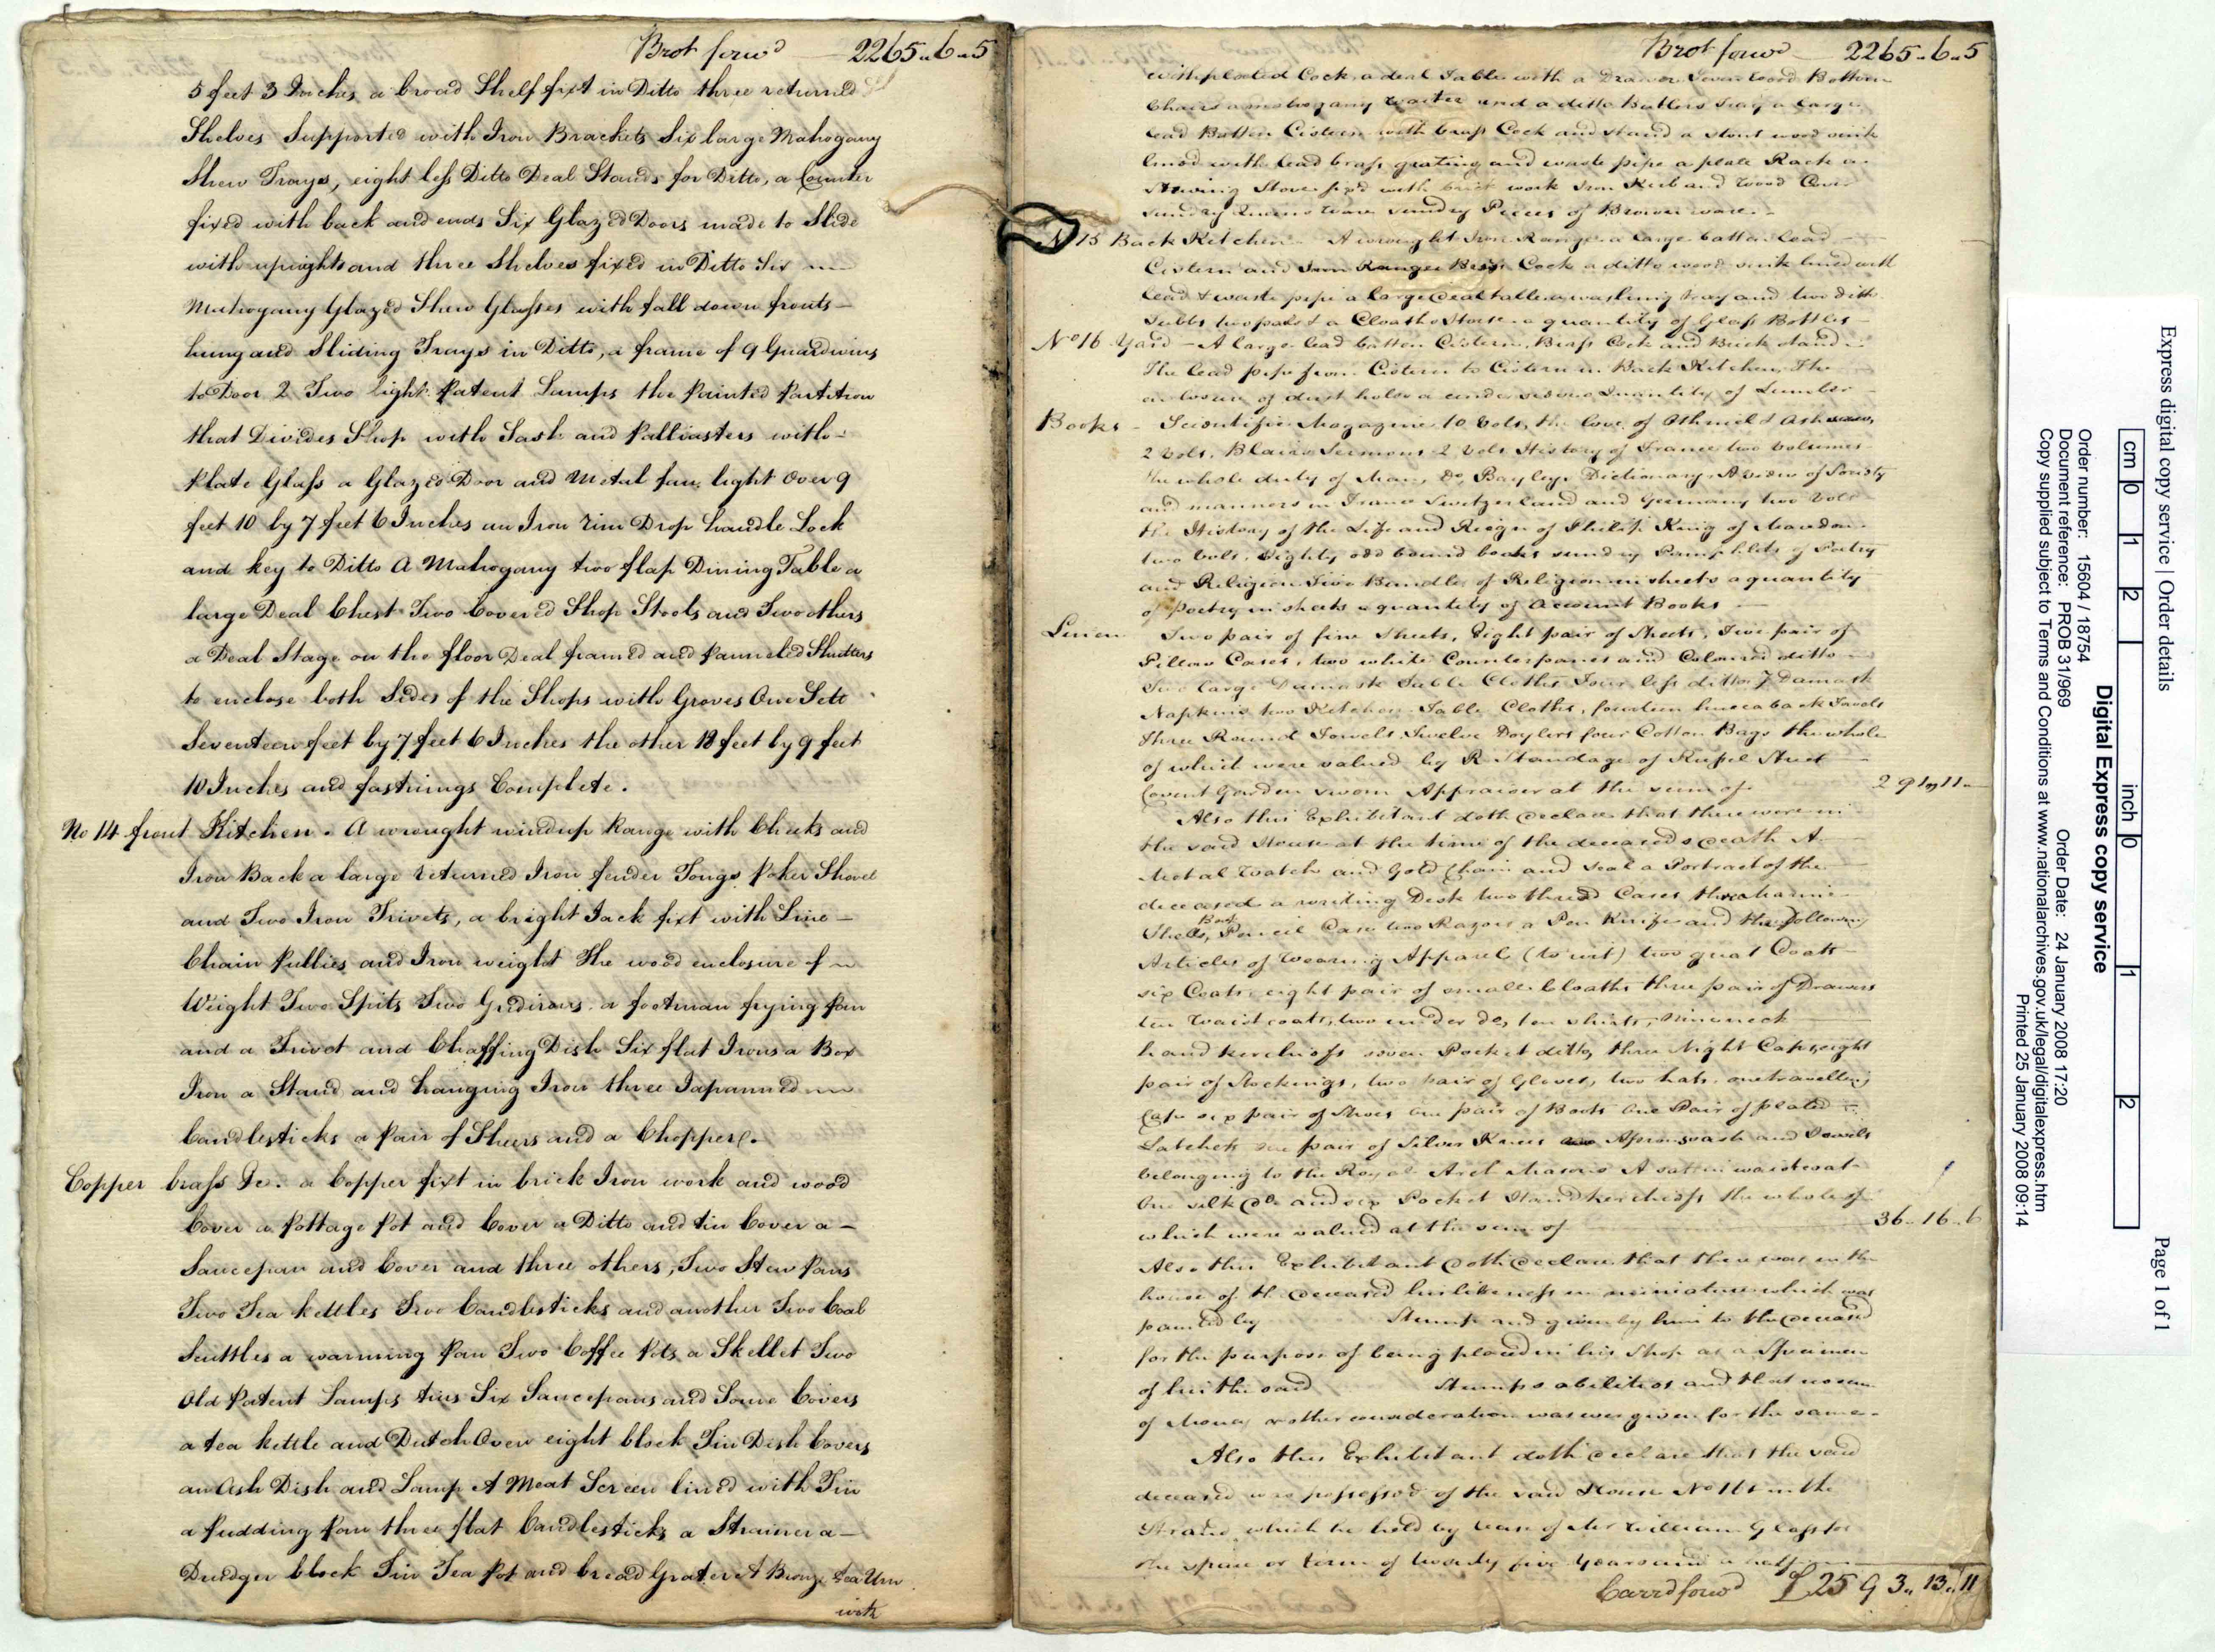 Brot forwd 2265.6.5
5 feet 3 Inches a broad Shelf fixt in Ditto three returned
Shelves Supported with Iron Brackets Six large Mahogany
Shew Trays, eight less Ditto Deal Stands for Ditto, a Counter
fixed with back and ends Six Glazed Doors made to Slide
with uprights and three Shelves fixed in Ditto Six
Mahogany Glazed Shew Glasses with fall down fronts
hung and Sliding Trays in Ditto, a frame of 9 Guardwires
to Door 2 Two light Patent Lamps the Painted Partition
that Divides Shop with Sash and Palliasters with
Plate Glass a Glazed Door and Metal fan light Over 9
feet 10 by 7 feet 6 Inches an Iron rim Drop handle Lock
and key to Ditto A Mahogany two flap Dining Table a
large Deal Chest Two Covered Shop Stools and Two others
a Deal Stage on the floor Deal framed and Panneled Shutters
to enclose both Sides of the Shops with Groves One Sett
Seventeen feet by 7 feet 6 Inches the other 18 feet by 9 feet
10 Inches and fastnings Complete.
No 14 front Kitchen. A wrought windup Range with Cheeks and
Iron Back a large returned Iron fender Tongs Poker Shovel
and Two Iron Trivets, a bright Jack fixt with Line
Chain Pullies and Iron weight The wood enclosure of
Weight Two Spits Two Gridirons a footman frying Pan
and a Trivet and Chaffing Dish Six flat Irons a Box
Iron a Stand and hanging Iron three Japanned
Candlesticks a Pair of Sheers and a Chopper.
Copper brass &c. a Copper fixt in brick Iron work and wood
Cover a Pottage Pot and Cover a Ditto and tin Cover a
Saucepan and Cover and three others, Two Stew Pans
Two Tea kettles Two Candlesticks and another Two Coal
Scuttles a warming Pan Two Coffee Pots a Skellet Two
Old Patent Lamps tins Six Saucepans and Some Covers
a tea kettle and Dutch Oven eight block Tin Dish Covers
an Ash Dish and Lamp A Meat Screen lined with Tin
a Pudding Pan three flat Candlesticks a Strainer a
Drudger block Tin Tea Pot and bread Grater A Bronze tea Urn
with
Brot forwd 2265.6.5
with plated Cock, a deal Table with a Drawer Seven wood Bottom
Chairs a mahogany waiter and a ditto Butlers Tray a large
lead Batten Cistern with brass Cock and stand a stout wood sink
lined with lead brass grating and waste pipe a plate Rack a
Stewing Stove fixd with brick work Iron Kirb and wood Cover
sundry Queens ware sundry Pieces of Brown ware.
No 15 Back Kitchen A wrought Iron Range a large batten lead
Cistern and Iron Ranges Brass Cock a ditto wood sink lined with
lead & waste pipe a large deal table a washing tray and two ditto
Tubbs two pails & a Cloaths Horse a quantity of Glass Bottles
No 16 Yard - A large lead batten Cistern, Brass Cock and Brick stand
The lead pipe from Cistern to Cistern in Back Kitchen, The
enclosure of dust hole a cinder Quantity of Lumber
Books - Scientific Magazine 10 Vols, the love of Othniel & Achsah
2 Vols, Blairs Sermons 2 Vols History of France two Volumes
the whole duty of Man, Do Bayleys Dictionary A view of Society
and manners in France Switzerland and Germany two Vols
the History of the Life and Reign of Philip King of Macedon
two Vols. Eighty odd bound books sundry Pamphlets of Poetry
and Religion Two Bundles of Religion in sheets a quantity
of Poetry in sheets a quantity of Account Books
Linen Two pair of fine Sheets, Eight pair of Sheets, Five pair of
Pillow Cases, two white Counterpanes and Coloured ditto
Two large Damask Table Cloths Four less ditto 7 Damask
Napkins two Kitchen Table Cloths, fourteen huccaback Towels
three Round Towels Twelve Doylers four Cotton Bags the whole
of which were valued by R Standage of Russel Street
Covent Garden sworn Appraiser at the sum of 291.11.
Also this Exhibitant doth declare that there were in
the said House at the time of the deceaseds death A
Metal Watch and Gold Chain and Seal a Portrait of the
deceased a writing Desk two thread Cases
Shells, Boat Pencil Case two Razors a Pen Knife and the following
Articles of Wearing Apparel (to wit) two great Coats
six Coats, eight pair of small Cloaths three pair of Drawers
ten Waistcoats, two under do, ten shirts, nine neck
handkerchiefs seven Pocket ditto, three Night Caps, eight
pair of Stockings, two pair of Gloves, two hats, one travelling
Cap six pair of Shoes One pair of Boots One Pair of plated
Latchets one pair of Silver Knee Apron sash and Jewels
belonging to the Royal Arch Masons A sattin waistcoat
One silk do and six Pocket Handkerchiefs the whole of
which were valued at the sum of 36.16.6
Also this Exhibitant doth declare that there was in the
house of the deceased his likeness in miniature which was
painted by Stump and given by him to the deceased
for the purpose of being placed in his Shop as a Specimen
of his the said Stumps abilities and that no sum
of Money or other consideration was ever given for the same.
Also this Exhibitant doth declare that the said
deceased was possessed of the said House No 165 in the
Strand which he held by lease of Mr William Glasse for
the space or term of twenty five Years and a half
Carrd forwd £2593.13.11
Express digital copy service | Order details
Page 1 of 1
Digital Express copy service
cm 0 1 2
inch 0 1 2
Order number: 15604 / 18754 Order Date: 24 January 2008 17:20
Document reference: PROB 31/969
Copy supplied subject to Terms and Conditions at www.nationalarchives.gov.uk/legal/digitalexpress.htm
Printed 25 January 2008 09:14